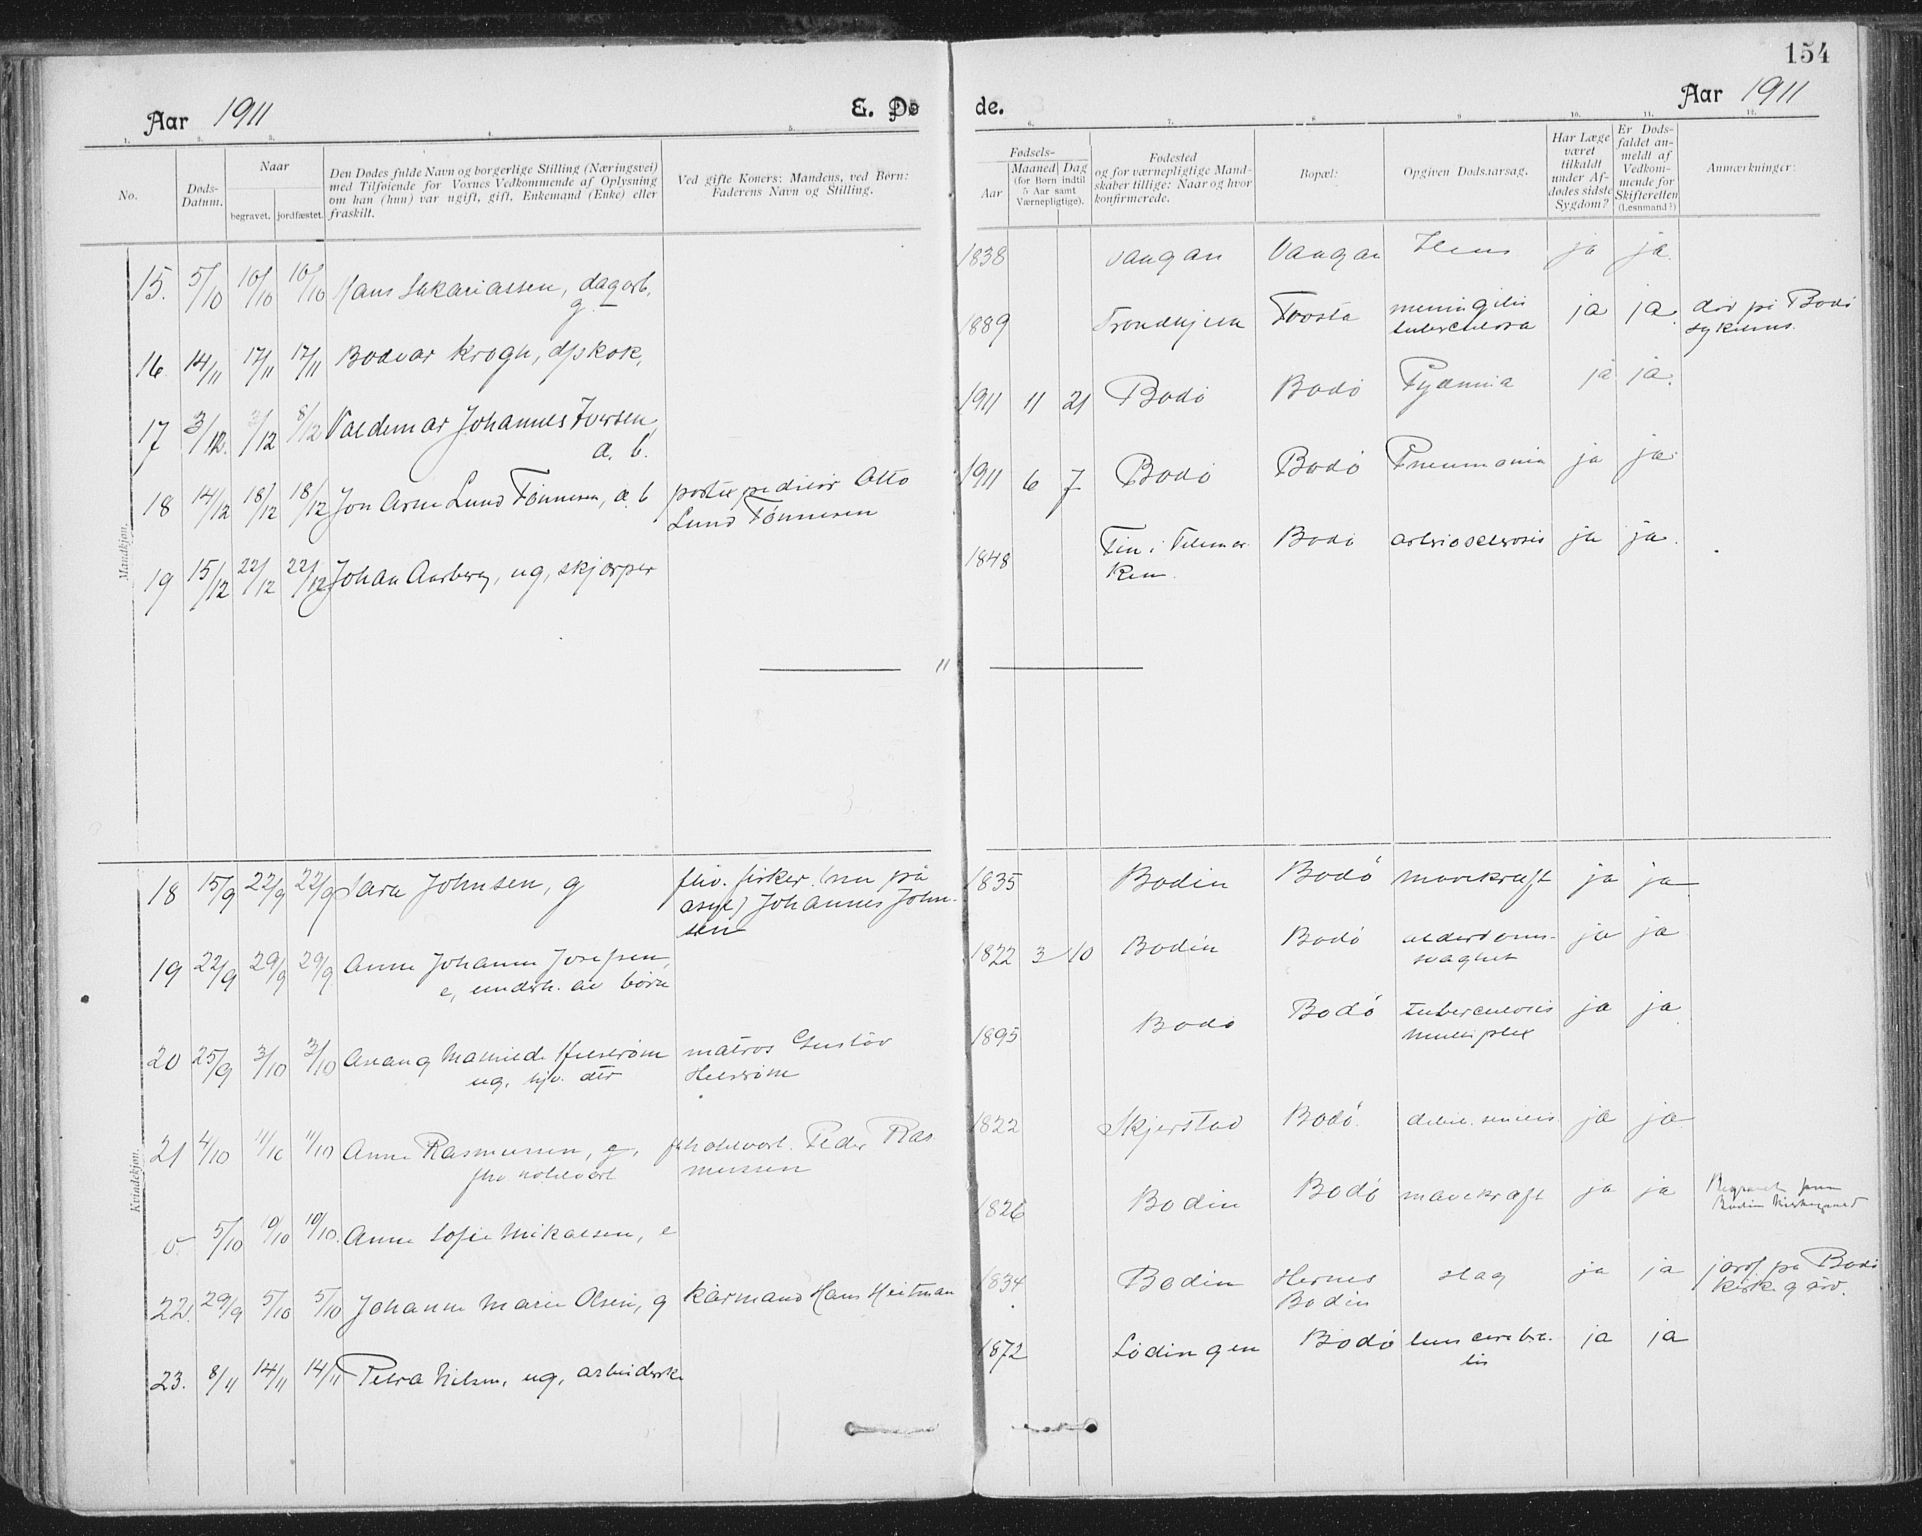 154
Aar 1911
E. Dø
de.
Aar 1911
1. 2. 3. 4. 5. 6. 7. 8. 9. 10. 11. 12.
No.
Døds-
Datum.
Naar
begravet. jordfæstet.
Den Dødes fulde Navn og borgerlige Stilling (Næringsvei)
med Tilføiende for Voxnes Vedkommende af Oplysning
om han (hun) var ugift, gift, Enkemand (Enke) eller
fraskilt.
Ved gifte Koners: Mandens, ved Børn:
Faderens Navn og Stilling.
Fødsels-
Aar
Maaned Dag
(for Børn indtil
5 Aar samt
Værnepligtige).
Fødested
og for værnepligtige Mand-
skaber tillige: Naar og hvor
konfirmerede.
Bopæl:
Opgiven Dødsaarsag.
Har Læge
været
tilkaldt
under Af-
dødes sidste
Sygdom?
Er Døds-
faldet an-
meldt af
Vedkom-
mende for
Skifteretten
(Lensmand?)
Anmærkninger:
Mandkjøn.
15. 5/10 10/10 10/10 Hans Sakariassen, dagarb, 1838 Vaagan Vaagan ja ja.
g.
16 14/11 17/11 17/11 Bodvar Krogh, d/skok, 1889 Trondhjem Frosta meningitis ja ja. død på Bodø
tuberculosa sykehus.
17 3/12. /12 8/12 Valdemar Johannes Iversen, 1911 11 21 Bodø Bodø Pyæmia ja ja.
a. b.
18 14/12 18/12 18/12 Jon Arne Lund Tønnesen, æ. b postexpeditør Otto 1911 6 7 Bodø Bodø Pneumonia ja ja.
Lund Tønnesen
19 15/12 22/12 22/12 Johan Aarberg, ug, skjærper 1848 Tin i Telemar Bodø arteriosclerosis ja ja.
ken.
11
Kvindekjøn.
18 15/9 22/9 22/9 Sara Johnsen, g fhv. fisker (nu på 1835 Bodin Bodø mavekræft ja ja
asyl) Johannes John-
sen
19 22/9 29/9 29/9 Anne Johanne Josefsen, 1822 3 10 Bodin Bodø alderdoms- ja ja
e, underh. av børn svaghet
20 25/9 3/10 3/10 matros Gustav 1895 Bodø Bodø tuberculosis ja ja
ug, hjv. dtr Helstrøm multiplex
21 4/10 11/10 11/10 Anne Rasmussen, g, fh hotelvært. Peder Ras 1822 Skjerstad Bodø. debil. senilis ja ja
fhv hotelvært mussen
0. 5/10 10/10 10/10. Anne Sofie Mikalsen, e 1826 Bodin Bodø mavekræft ja ja Begravet paa
Bodin Kirkegaard
22. 29/9 5/10 5/10 Johanne Marie Olsen, g kårmand Hans Heitman 1834 Bodin Hernes slag ja ja jordf. på Bodø
Bodin kirkegård.
23. 8/11 14/11 14/11 Petra Nilsen, ug, arbeiderske 1872 Lødingen Bodø lues cerebra- ja ja
lis